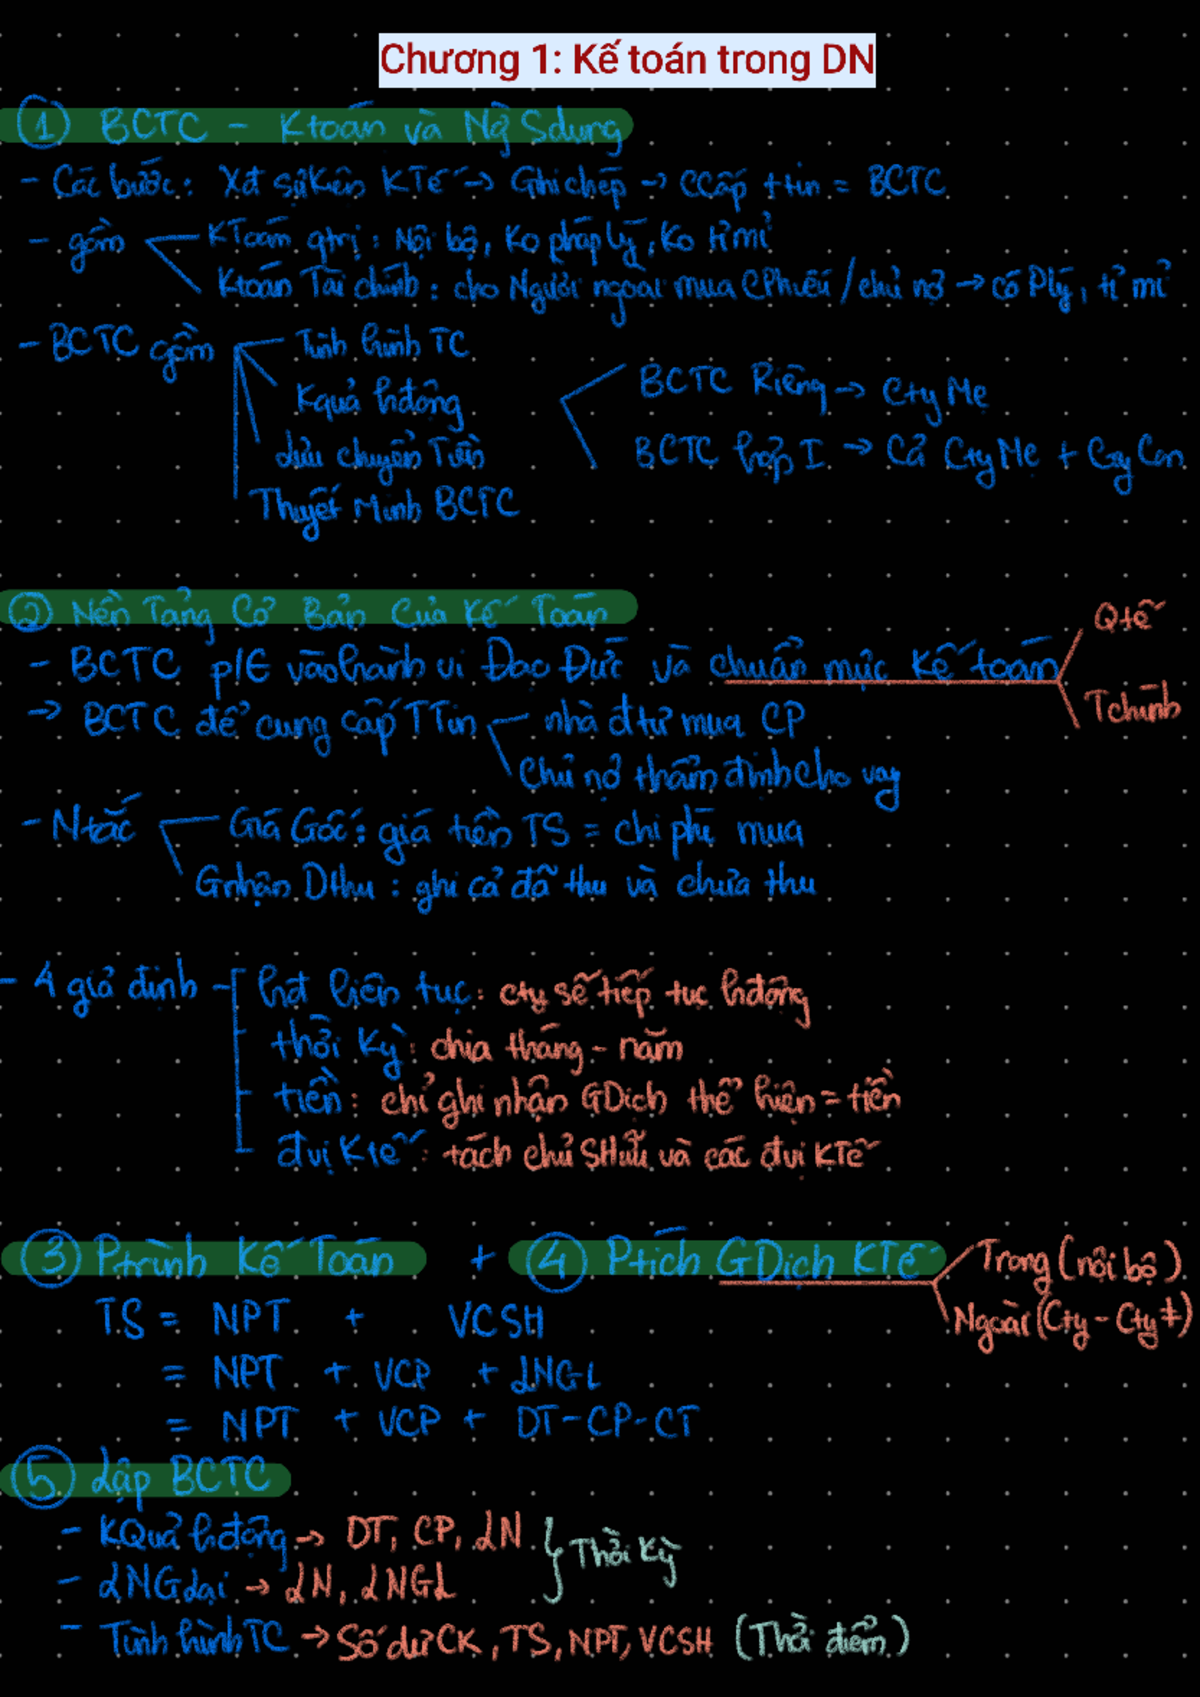 Chương 1: Kế toán trong DN
① BCTC - Ktoán và Ng̀ Sdụng
- Các bước: Xđ sự kiện KTế → Ghi chép → CCấp ttin = BCTC
- gồm KToán qtrị: Nội bộ, Ko pháp lý, Ko tỉ mỉ
Ktoán Tài chính: cho Người ngoài mua CPhiếu / chủ nợ → có Plý, tỉ mỉ
- BCTC gồm Tình hình TC
Kquả hđộng
Lưu chuyển Tiền
Thuyết Minh BCTC
BCTC Riêng → Cty Mẹ
BCTC hợp I → Cả Cty Mẹ + Cty Con
② Nền Tảng Cơ Bản Của Kế Toán
- BCTC p/E vào hành vi Đạo Đức và chuẩn mực kế toán
Qtế
Tchính
→ BCTC để cung cấp TTin nhà đtư mua CP
Chủ nợ thẩm định cho vay
- Ntắc Giá Gốc: giá tiền TS = chi phí mua
Gnhận Dthu: ghi cả đã thu và chưa thu
- 4 giả định hđ liên tục: cty sẽ tiếp tục hđộng
thời kỳ: chia tháng - năm
tiền: chỉ ghi nhận GDịch thể hiện = tiền
đvị Ktế: tách chủ SHữu và các đvị KTế
③ Ptrình Kế Toán + ④ Ptích GDịch KTế
Trong (nội bộ)
Ngoài (Cty - Cty ≠)
TS = NPT + VCSH
= NPT + VCP + LNGL
= NPT + VCP + DT-CP-CT
⑤ Lập BCTC
- KQuả hđộng → DT, CP, LN
- LNGLại → LN, LNGL
Thời kỳ
- Tình hình TC → Số dư CK, TS, NPT, VCSH (Thời điểm)